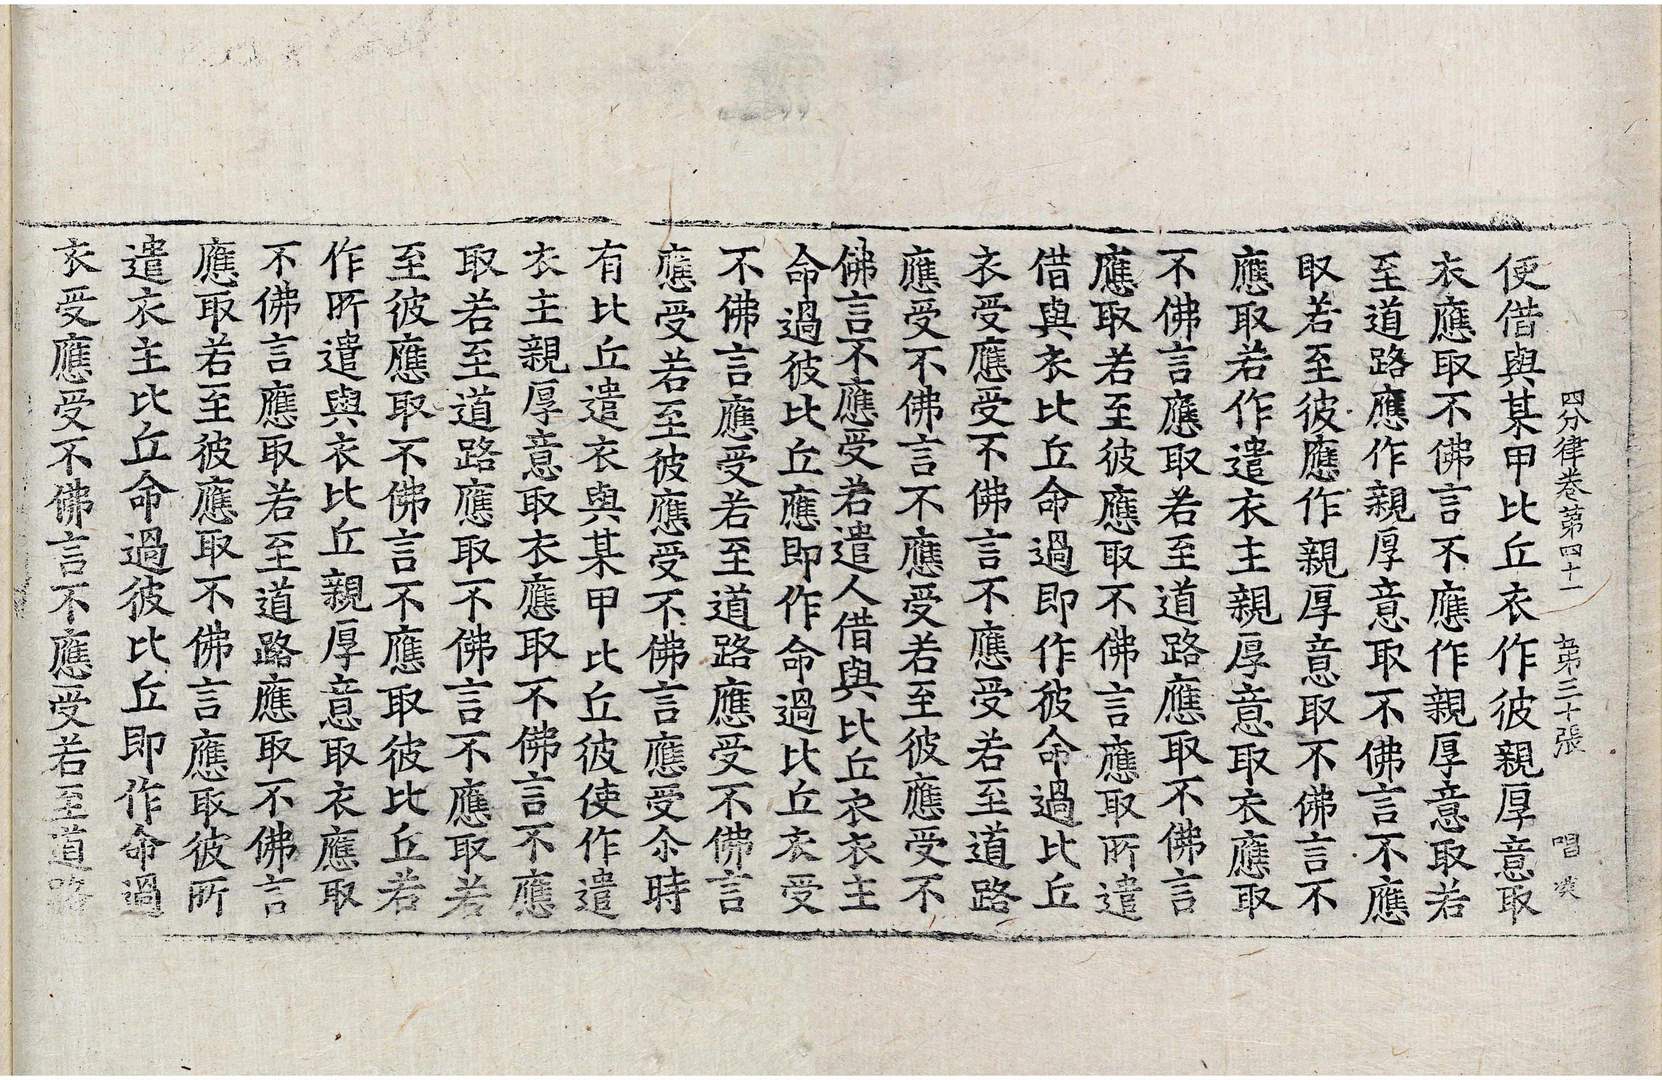 四分律卷第四十一　第三十張　唱
使借與某甲比丘衣作彼親厚意取
衣應取不佛言不應作親厚意取若
至道路應作親厚意取不佛言不應
取若至彼應作親厚意取不佛言不
應取若作遣衣主親厚意取衣應取
不佛言應取若至道路應取不佛言
應取若至彼應取不佛言應取所遣
借與衣比丘命過即作彼命過比丘
衣受應受不佛言不應受若至道路
應受不佛言不應受若至彼應受不
佛言不應受若遣人借與比丘衣衣主
命過彼比丘應即作命過比丘衣受
不佛言應受若至道路應受不佛言
應受若至彼應受不佛言應受尒時
有比丘遣衣與某甲比丘彼使作遣
衣主親厚意取衣應取不佛言不應
取若至道路應取不佛言不應取若
至彼應取不佛言不應取彼比丘若
作所遣與衣比丘親厚意取衣應取
不佛言應取若至道路應取不佛言
應取若至彼應取不佛言應取彼所
遣衣主比丘命過彼比丘即作命過
衣受應受不佛言不應受若至道路